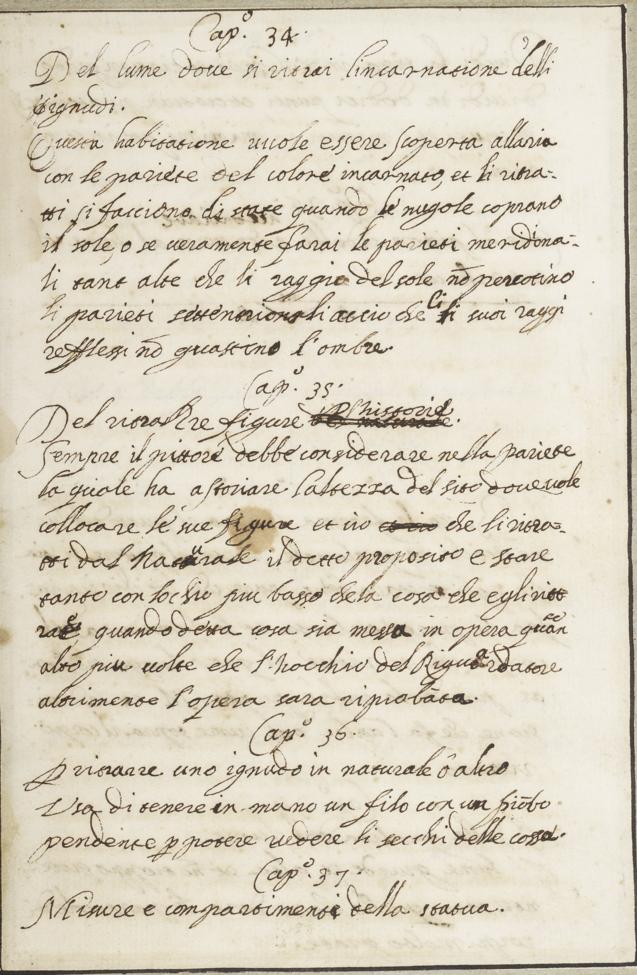 Cap.º 34.
Del lume dove si ritrai lincarnatione delli
ignudi.
Questa habitatione vuole essere scoperta allaria
con le pariete del colore incarnato, et li ritra-
tti si facciono di state quando le nugole coprano
il sole, o se veramente farai le parieti meridona-
li tant alte che li raggie del sole nō percotino
li parieti settentrionali accio che li suoi raggi
reflessi nō guastino l'ombre.
Cap.º 35.
Del ritrarre figure p l'historie.
Sempre il pittore debbe considerare nella pariete
la quale ha astoriare l'altezza del sito dove vole
collocare le sue figure et cio che li ritra-
tti dal naturale il detto proposito e stare
tanto con lochio piu basso che la cosa che egli ritt
rae quando detta cosa sia messa in opera quan
alto piu volte che l'hocchio del Riguardatore
altrimente l'opera sara riprobata.
Cap.º 36.
p ritrarre uno ignudo in naturale ō altro
Usa di tenere in mano un filo con un piōbo
pendente p potere vedere li secchi delle cosa.
Cap.º 37.
Misure e compartimenti della statua.